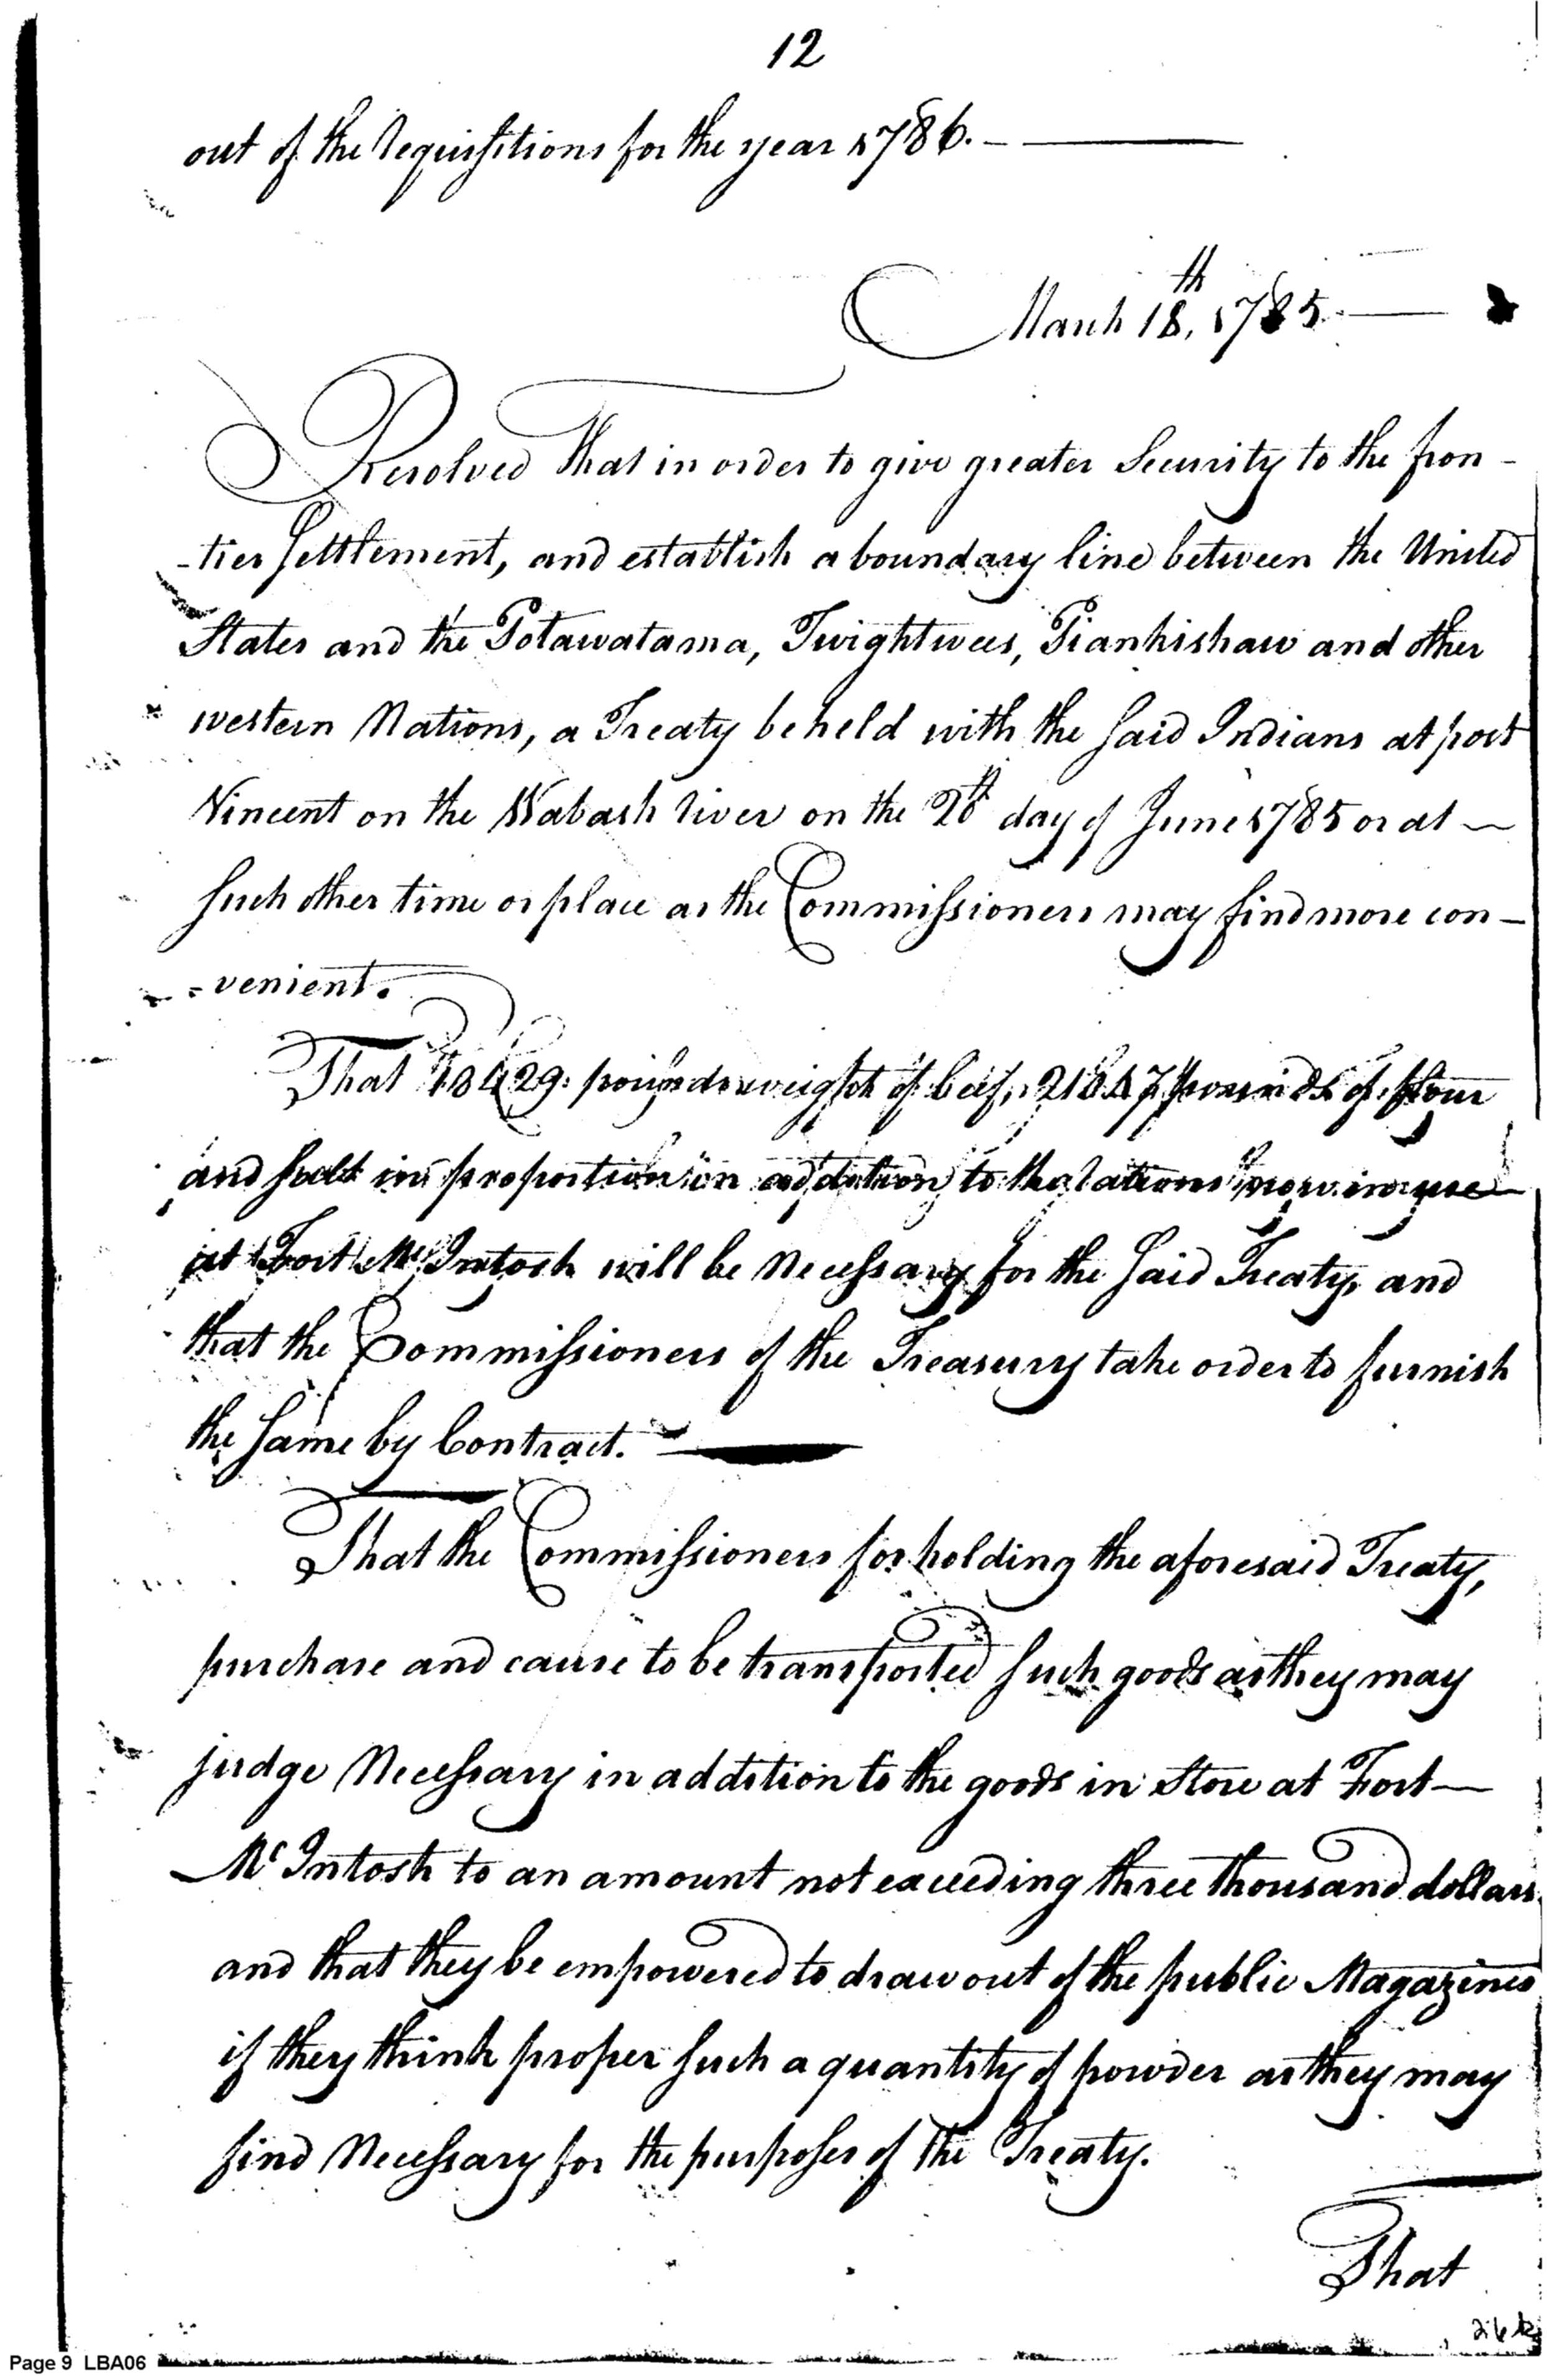 12
out of the requisitions for the year 1786. —
March 18th, 1785. —
Resolved That in order to give greater Security to the fron-
-tier Settlement, and establish a boundary line between the United
States and the Potawatama, Twightwees, Piankishaw and other
western Nations, a Treaty be held with the said Indians at post
Vincent on the Wabash river on the 20th day of June 1785 or at —
such other time or place as the Commissioners may find more con-
=venient.
That pounds weight of beef, pounds of flour
and salt in proportion in addition to the rations now in use
at Fort McIntosh will be necessary for the said Treaty, and
that the Commissioners of the Treasury take order to furnish
the same by Contract. —
That the Commissioners for holding the aforesaid Treaty,
purchase and cause to be transported such goods as they may
judge Necessary in addition to the goods in Store at Fort —
McIntosh to an amount not exceeding three thousand dollars
and that they be empowered to draw out of the public Magazines
if they think proper such a quantity of powder as they may
find Necessary for the purposes of the Treaty.
That
Page 9 LBA06